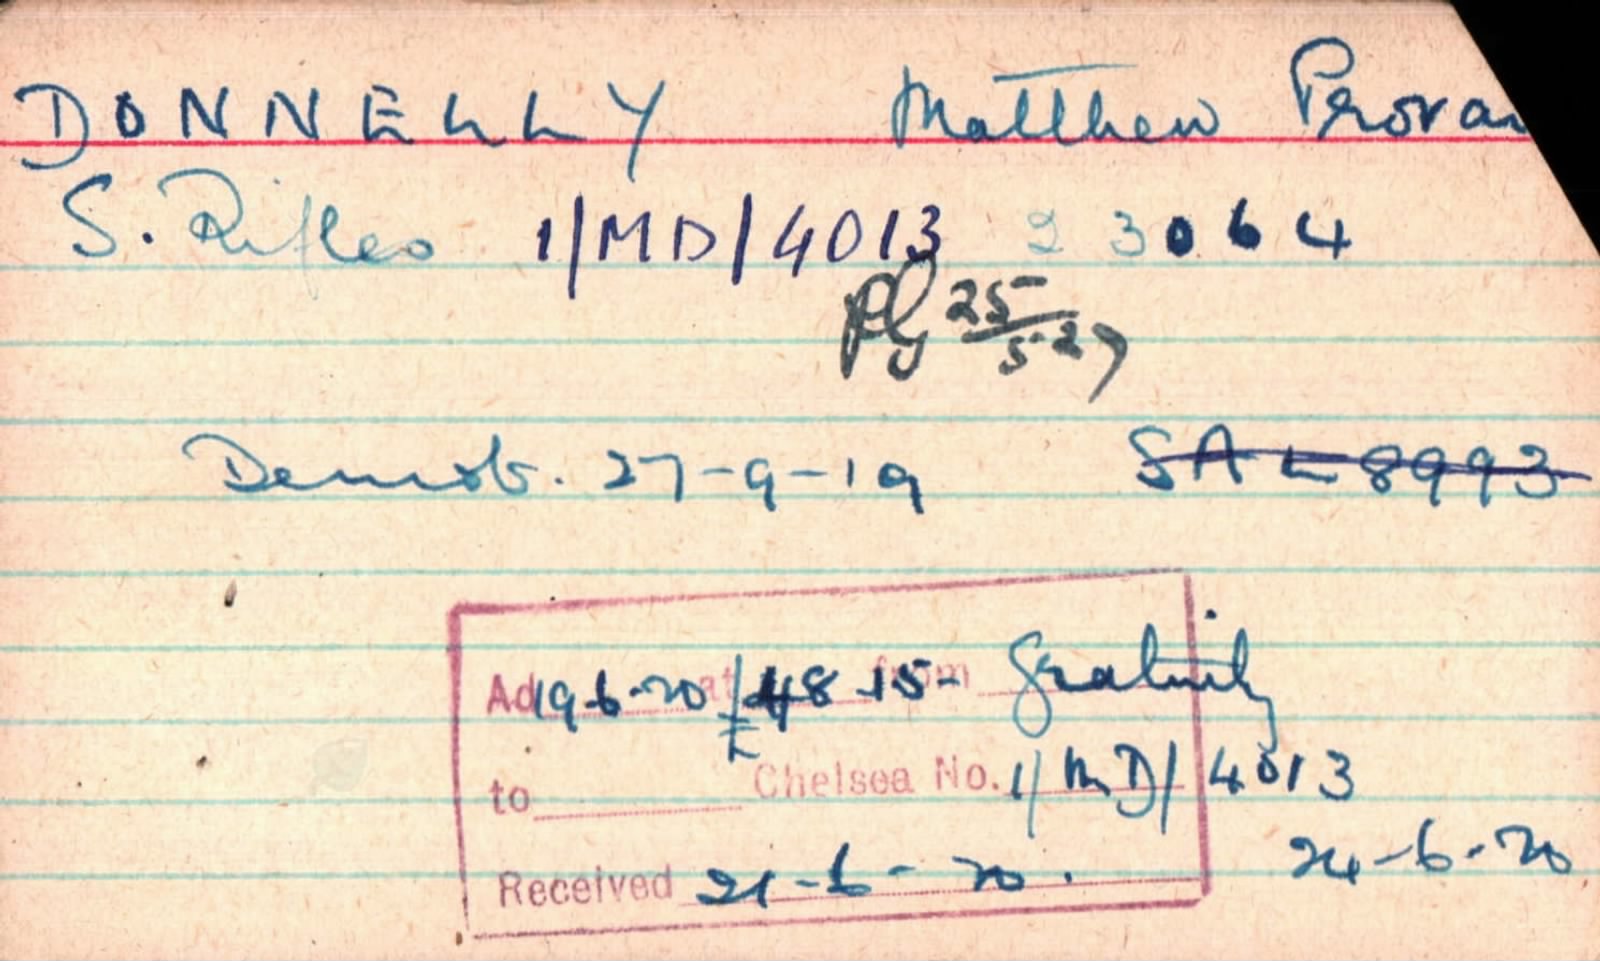 DONNELLY Matthew Provan
S. Rifles 1/MD/4013 23064
25/5-27
Demob. 27-9-19 SAL 8993
Ad 19-6-20 at £48-15- from Gratuity
to Chelsea No. 1/MD/4013
Received 21-6-20. 24-6-20